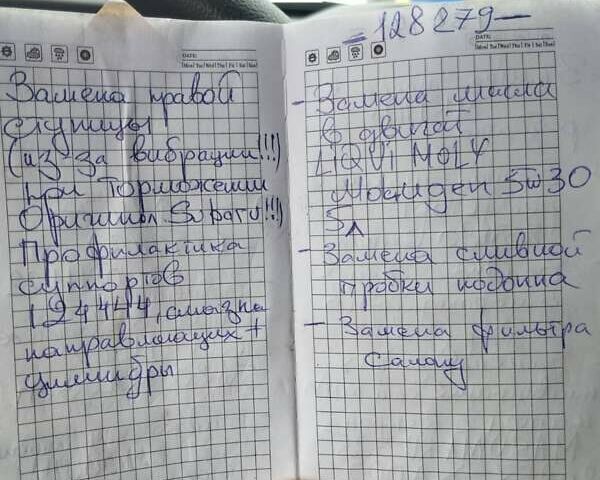 DATE:
Mon Tue Wed Thu Fri Sat Sun
Замена правой
ступицы
(из-за вибрации!!!)
при торможении
Оригинал Subaru!!!)
Профилактика
суппортов
124444, смазка
направляющих +
цилиндры
= 128279 —
DATE:
Mon Tue Wed Thu Fri Sat Sun
- Замена масла
в двигат
LIQVi MOLY
Molygen 5w30
5л
- Замена сливной
пробки поддона
- Замена фильтра
салону